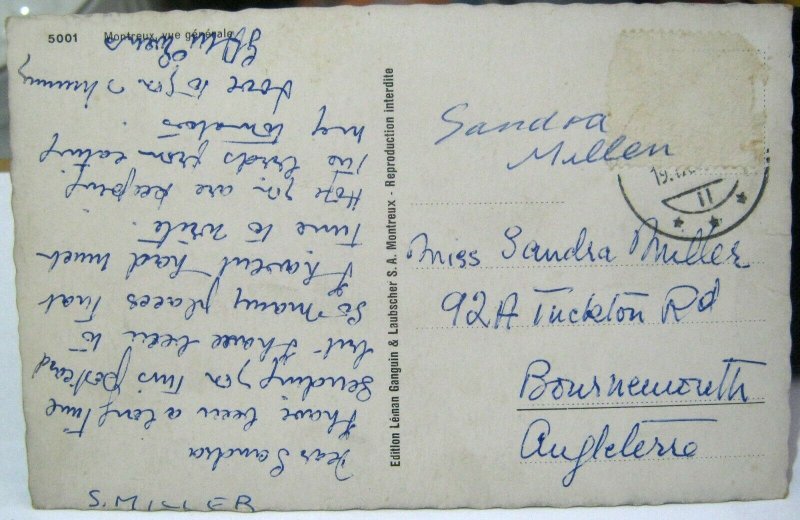 5001 Montreux, vue générale
S. MILLER
Dear Sandra
I have been a long time
sending you this postcard
but I have been to
so many places that
I havent had much
time to write.
Hope you are keeping
the birds from eating
my tomatoes.
Love to you & mummy
Edition Léman Ganguin & Laubscher S.A. Montreux - Reproduction interdite
Sandra
Millen
19.
II
Miss Sandra Miller
92A Tuckton Rd
Bournemouth
Angleterre